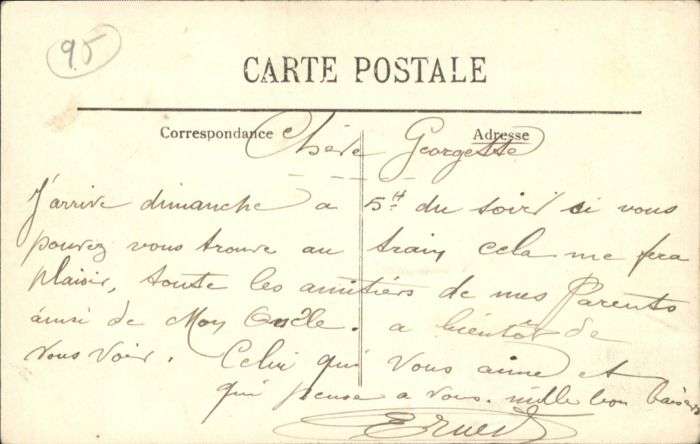 95
CARTE POSTALE
Correspondance
Adresse
Chère Georgette
J'arrive dimanche a 5h du soir si vous
pouvez vous trouve au train cela me fera
plaisir, toute les amitiers de mes Parents
ainsi de Mon Oncle. a bientôt de
vous voir. Celui qui vous aime et
qui pense a vous. mille bon baisers
Ernest